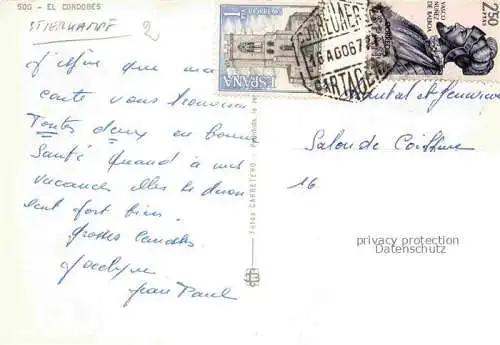 500 - EL CORDOBÉS
STIERKAMPF
2
J'espère que ma
carte vous trouvera
Toutes deux en bonne
Santé quand à mes
vacances elles se
fort bien.
Grosses
Jocelyne
Jean Paul
Fotos CARRETERO.
1 PTA
CORREOS
ESPAÑA
16 AGO 67
CARTAGENA
VASCO
NUÑEZ
DE BALBOA
2,50
PTAS
Chantal et
Salon de Coiffure
16
privacy protection
Datenschutz